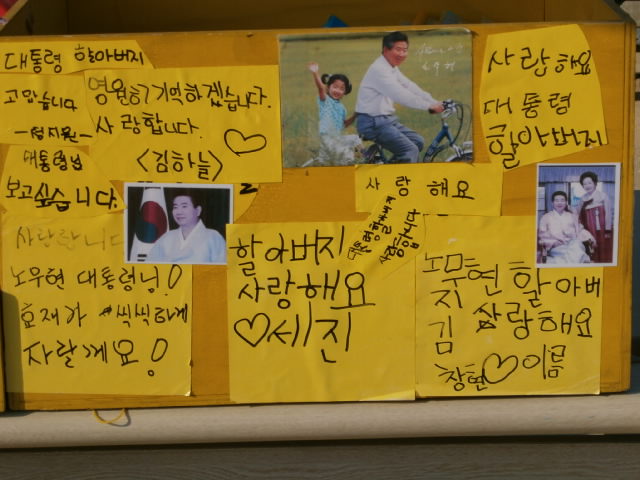 대통령 할아버지
고맙습니다
대통령님
보고싶습니다.
영원히 기억하겠습니다.
사랑합니다.
<김하늘>
사랑해요
대통령
할아버지
사랑해요
사랑합니다
노우현 대통령님!
효재가 씩씩하게
자랄게요!
할아버지
사랑해요
♡세진
노무현 할아버
지 사랑해요
김
창현♡이름